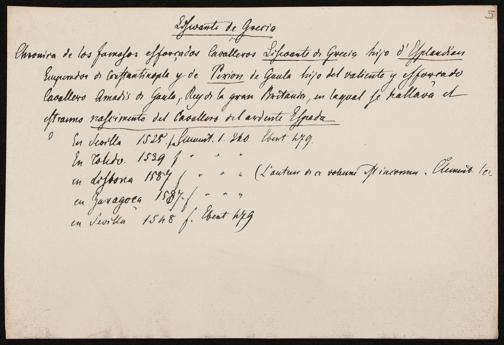 Lisuarte de Grecia
Chronica de los famosos esforçados Cavalleros Lisuarte de Grecia hijo d'Esplandian
Emperador de Constantinopla y de Perion de Gaula hijo del valiente y esforçado
Cavallero Amadis de Gaula, Rey de la gran Bretaña, en laqual se hallara el
estranno nascimento del Cavallero del ardiente Espada
En Sevilla 1525 f. 1. 260 Ebert 479.
En Toledo 1539 f " " "
en Lisbona 1587 f " " " (L'auteur de ce volume est inconnu.
en Zaragoça 1587. f " " "
en Sevilla 1548 f. Ebert 479